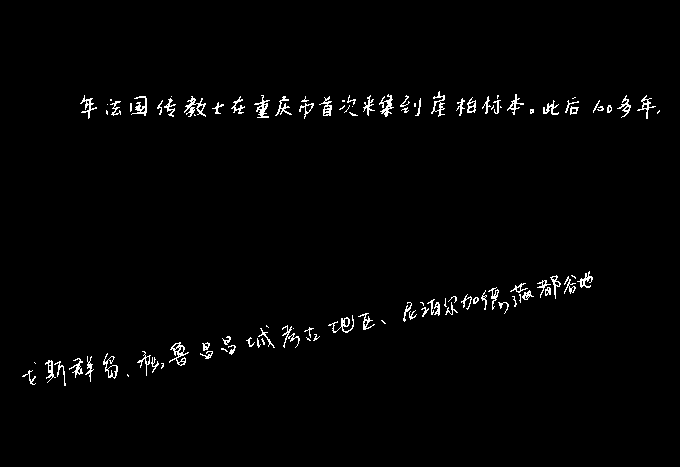 年法国传教士在重庆市首次采集到崖柏标本。此后100多年,
戈斯群岛、秘鲁昌昌城考古地区、尼泊尔加德满都谷地